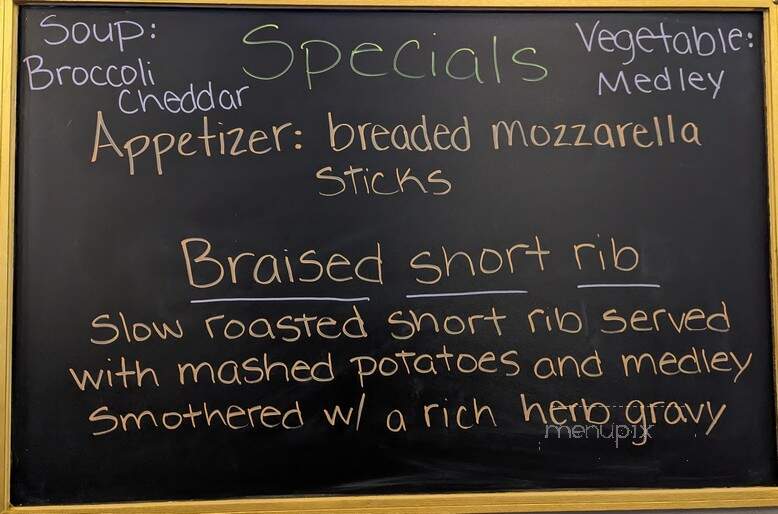 Soup:
Broccoli
Cheddar
Specials
Vegetable:
Medley
Appetizer: breaded mozzarella
sticks
Braised short rib
Slow roasted short rib served
with mashed potatoes and medley
smothered w/ a rich herb gravy
menupix